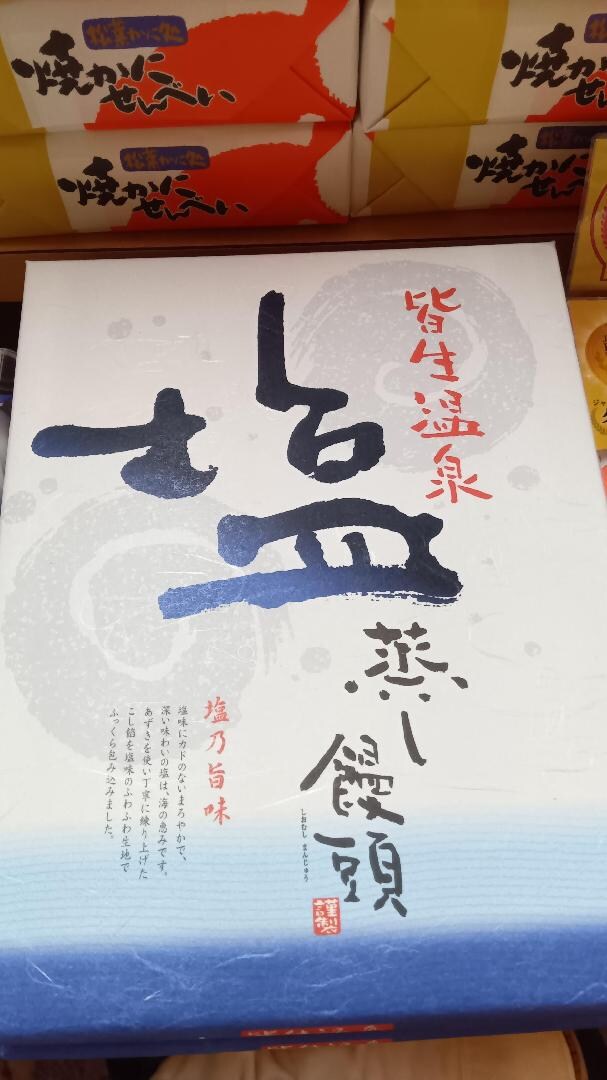 松葉かに処
焼かに
せんべい
松葉かに処
焼かに
せんべい
焼かに
せんべい
焼かに
せんべい
皆生温泉
塩
蒸し
饅頭
しおむし まんじゅう
謹製
塩乃旨味
塩味にカドのないまろやかで、
深い味わいの塩は、海の恵みです。
あずきを使い丁寧に練り上げた
こし餡を塩味のふわふわ生地で
ふっくら包み込みました。